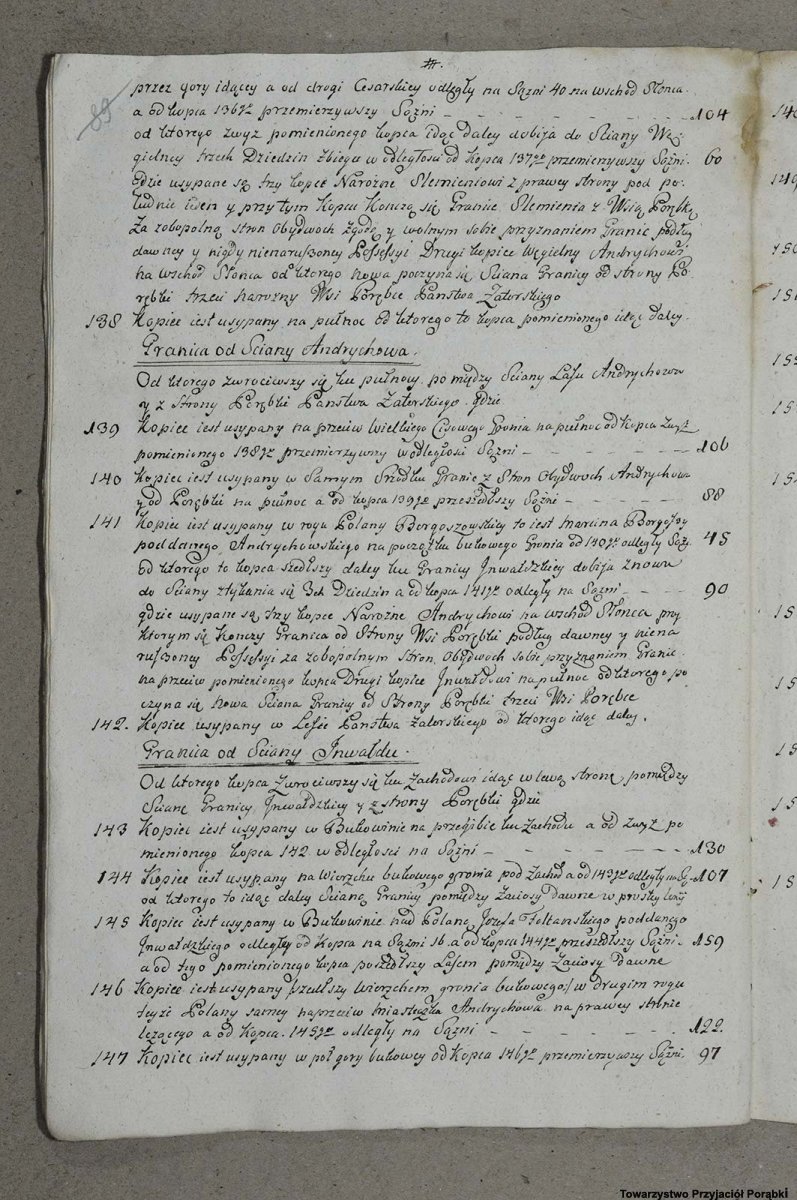 przez gory idącey a od drogi Cesarskiey odległy na Sążni 40 na wschod Słonca
89
a od kopca 136go przemierzywszy Sążni 104
od ktorego zwyż pomienionego kopca idąc daley dobija do Sciany Wę-
gielney trzech Dziedzin zbiegu w odległosci od Kopca 137go przemierzywszy Sążni 60
gdzie usypane są trzy kopce Narożne Slemieniowi z prawey strony pod po-
łudnie ieden y przy tym Kopcu Konczą się Granice Slemienia z Wsią Porębką
za zobopolną stron Obydwoch zgodą y wolnym sobie przyznaniem Granic podług
dawney y nigdy nienaruszoney Possessyi Drugi kopiec Węgielny Andrychowi
na wschod Słonca od ktorego nowa poczyna się Sciana Granicy od strony Po-
rębki trzeci narozny Wsi Porębce Panstwa Zatorskiego
138 Kopiec iest usypany na pułnoc od ktorego to kopca pomienionego idąc daley.
Granica od Sciany Andrychowa.
Od ktorego zwrociwszy się ku pułnocy pomiędzy Sciany Lasu Andrychowa
y z Strony Porębki Panstwa Zatorskiego gdzie
139 Kopiec iest usypany na przeciw Wielkiego Cisowego Gronia na pułnoc od Kopca zwyż
pomienionego 138go przemierzywszy w odległosci Sążni 106
140 Kopiec iest usypany w Samym Srzodku Granic z Stron Obydwoch Andrychowa
y od Porębki na pułnoc a od kopca 139go przeszedłszy Sążni 88
141 Kopiec iest usypany w rogu Polany Bergoszowskiey to iest Marcina
poddanego Andrychowskiego na początku bukowego Gronia od 140go odległy Sąż. 45
Od ktorego to kopca szedłszy daley ku Granicy Inwałdzkiey dobija znowu
do Sciany ztykania się 3ch Dziedzin a od kopca 141go odległy na Sążni 90
gdzie usypane są trzy kopce Narożne Andrychowi na wschod Słonca przy
ktorym się Konczy Granica od Strony Wsi Porębki podług dawney y niena
ruszoney Possessyi za zobopolnym stron Obydwoch sobie przyznaniem Granic.
na przeciw pomienionego kopca Drugi kopiec Inwałdowi na pułnoc od ktorego po
czyna się nowa Sciana Granicy od Strony Porębki trzeci Wsi Porębce
142. Kopiec usypany w Lesie Panstwa Zatorskiego od ktorego idąc daley.
Granica od Sciany Inwałdu.
Od ktorego kopca zwrociwszy się ku zachodowi idąc w lewą stronę pomiędzy
Scianę Granicy Inwałdzkiey y z strony Porębki gdzie
143 Kopiec iest usypany w Bukowinie na przegibie ku zachodu a od zwyż po
mienionego kopca 142 w odległosci na Sążni 130
144 Kopiec iest usypany na wierzchu bukowego gronia pod zachod a od 143go odległy na 107
od ktorego to idąc daley Scianą Granicy pomiędzy zaciosy Dawne w prostey
145 Kopiec iest usypany w Bukowinie nad Polaną Jozefa Foltanskiego poddanego
Inwałdzkiego odległey od Kopca na Sążni 16 a od kopca 144go przeszedłszy Sążni 159
a od tego pomienionego kopca poszedłszy Lasem pomiędzy Zaciosy Dawne
146 Kopiec iest usypany szedłszy wierzchem gronia bukowego w drugim rogu
teyże Polany samey naprzeciw miasteczka Andrychowa na prawey stronie
leżącego a od Kopca 145go odległy na Sążni 122.
147 Kopiec iest usypany w poł gory bukowey od Kopca 146go przemierzywszy Sążni 97
Towarzystwo Przyjaciół Porąbki